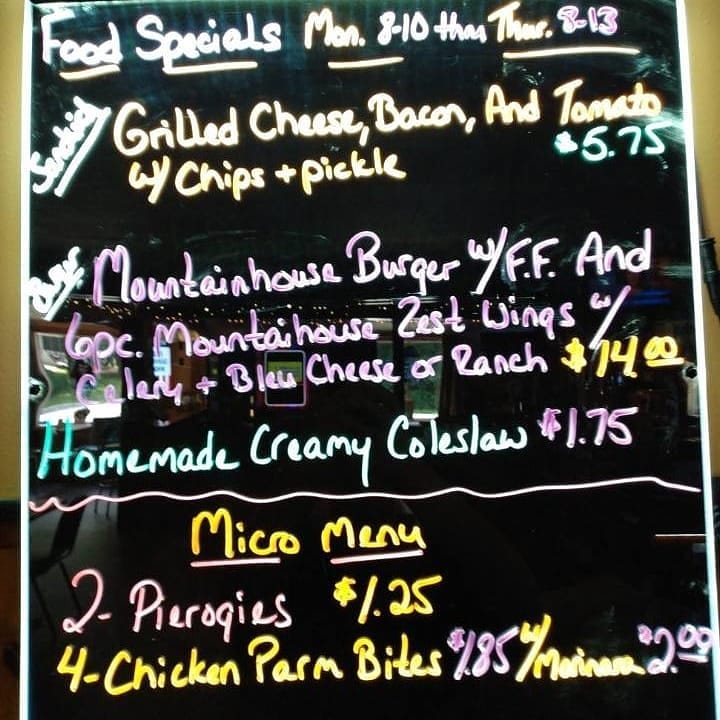 Food Specials Mon. 8-10 thru Thur. 8-13
Sandwich Grilled Cheese, Bacon, And Tomato
w/ Chips + pickle $5.75
Burger Mountainhouse Burger w/ F.F. And
6pc. Mountaihouse Zest Wings w/
Celery + Bleu Cheese or Ranch $14.00
Homemade Creamy Coleslaw $1.75
Micro Menu
2- Pierogies $1.25
4-Chicken Parm Bites $1.85 w/Marinara $2.00